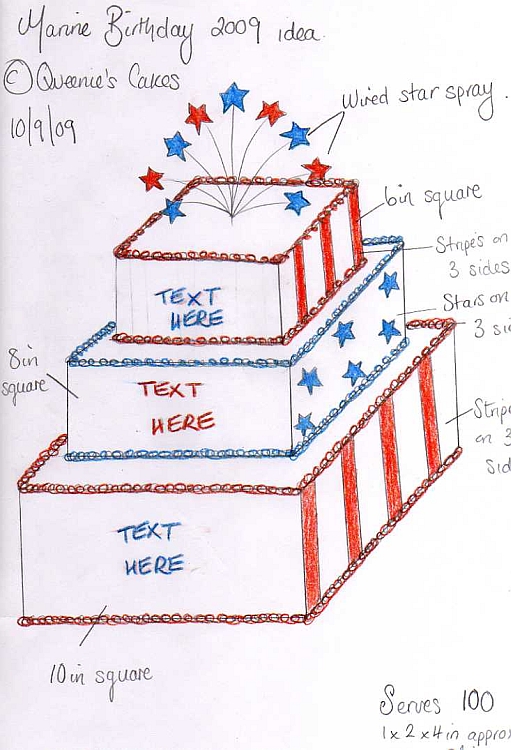 Marine Birthday 2009 idea.
© Queenie's Cakes
10/9/09
Wired star spray.
6in square
Stripes on
3 sides
Stars on
3
TEXT
HERE
8in
square
TEXT
HERE
on 3
TEXT
HERE
10in square
Serves 100
1x2x4in